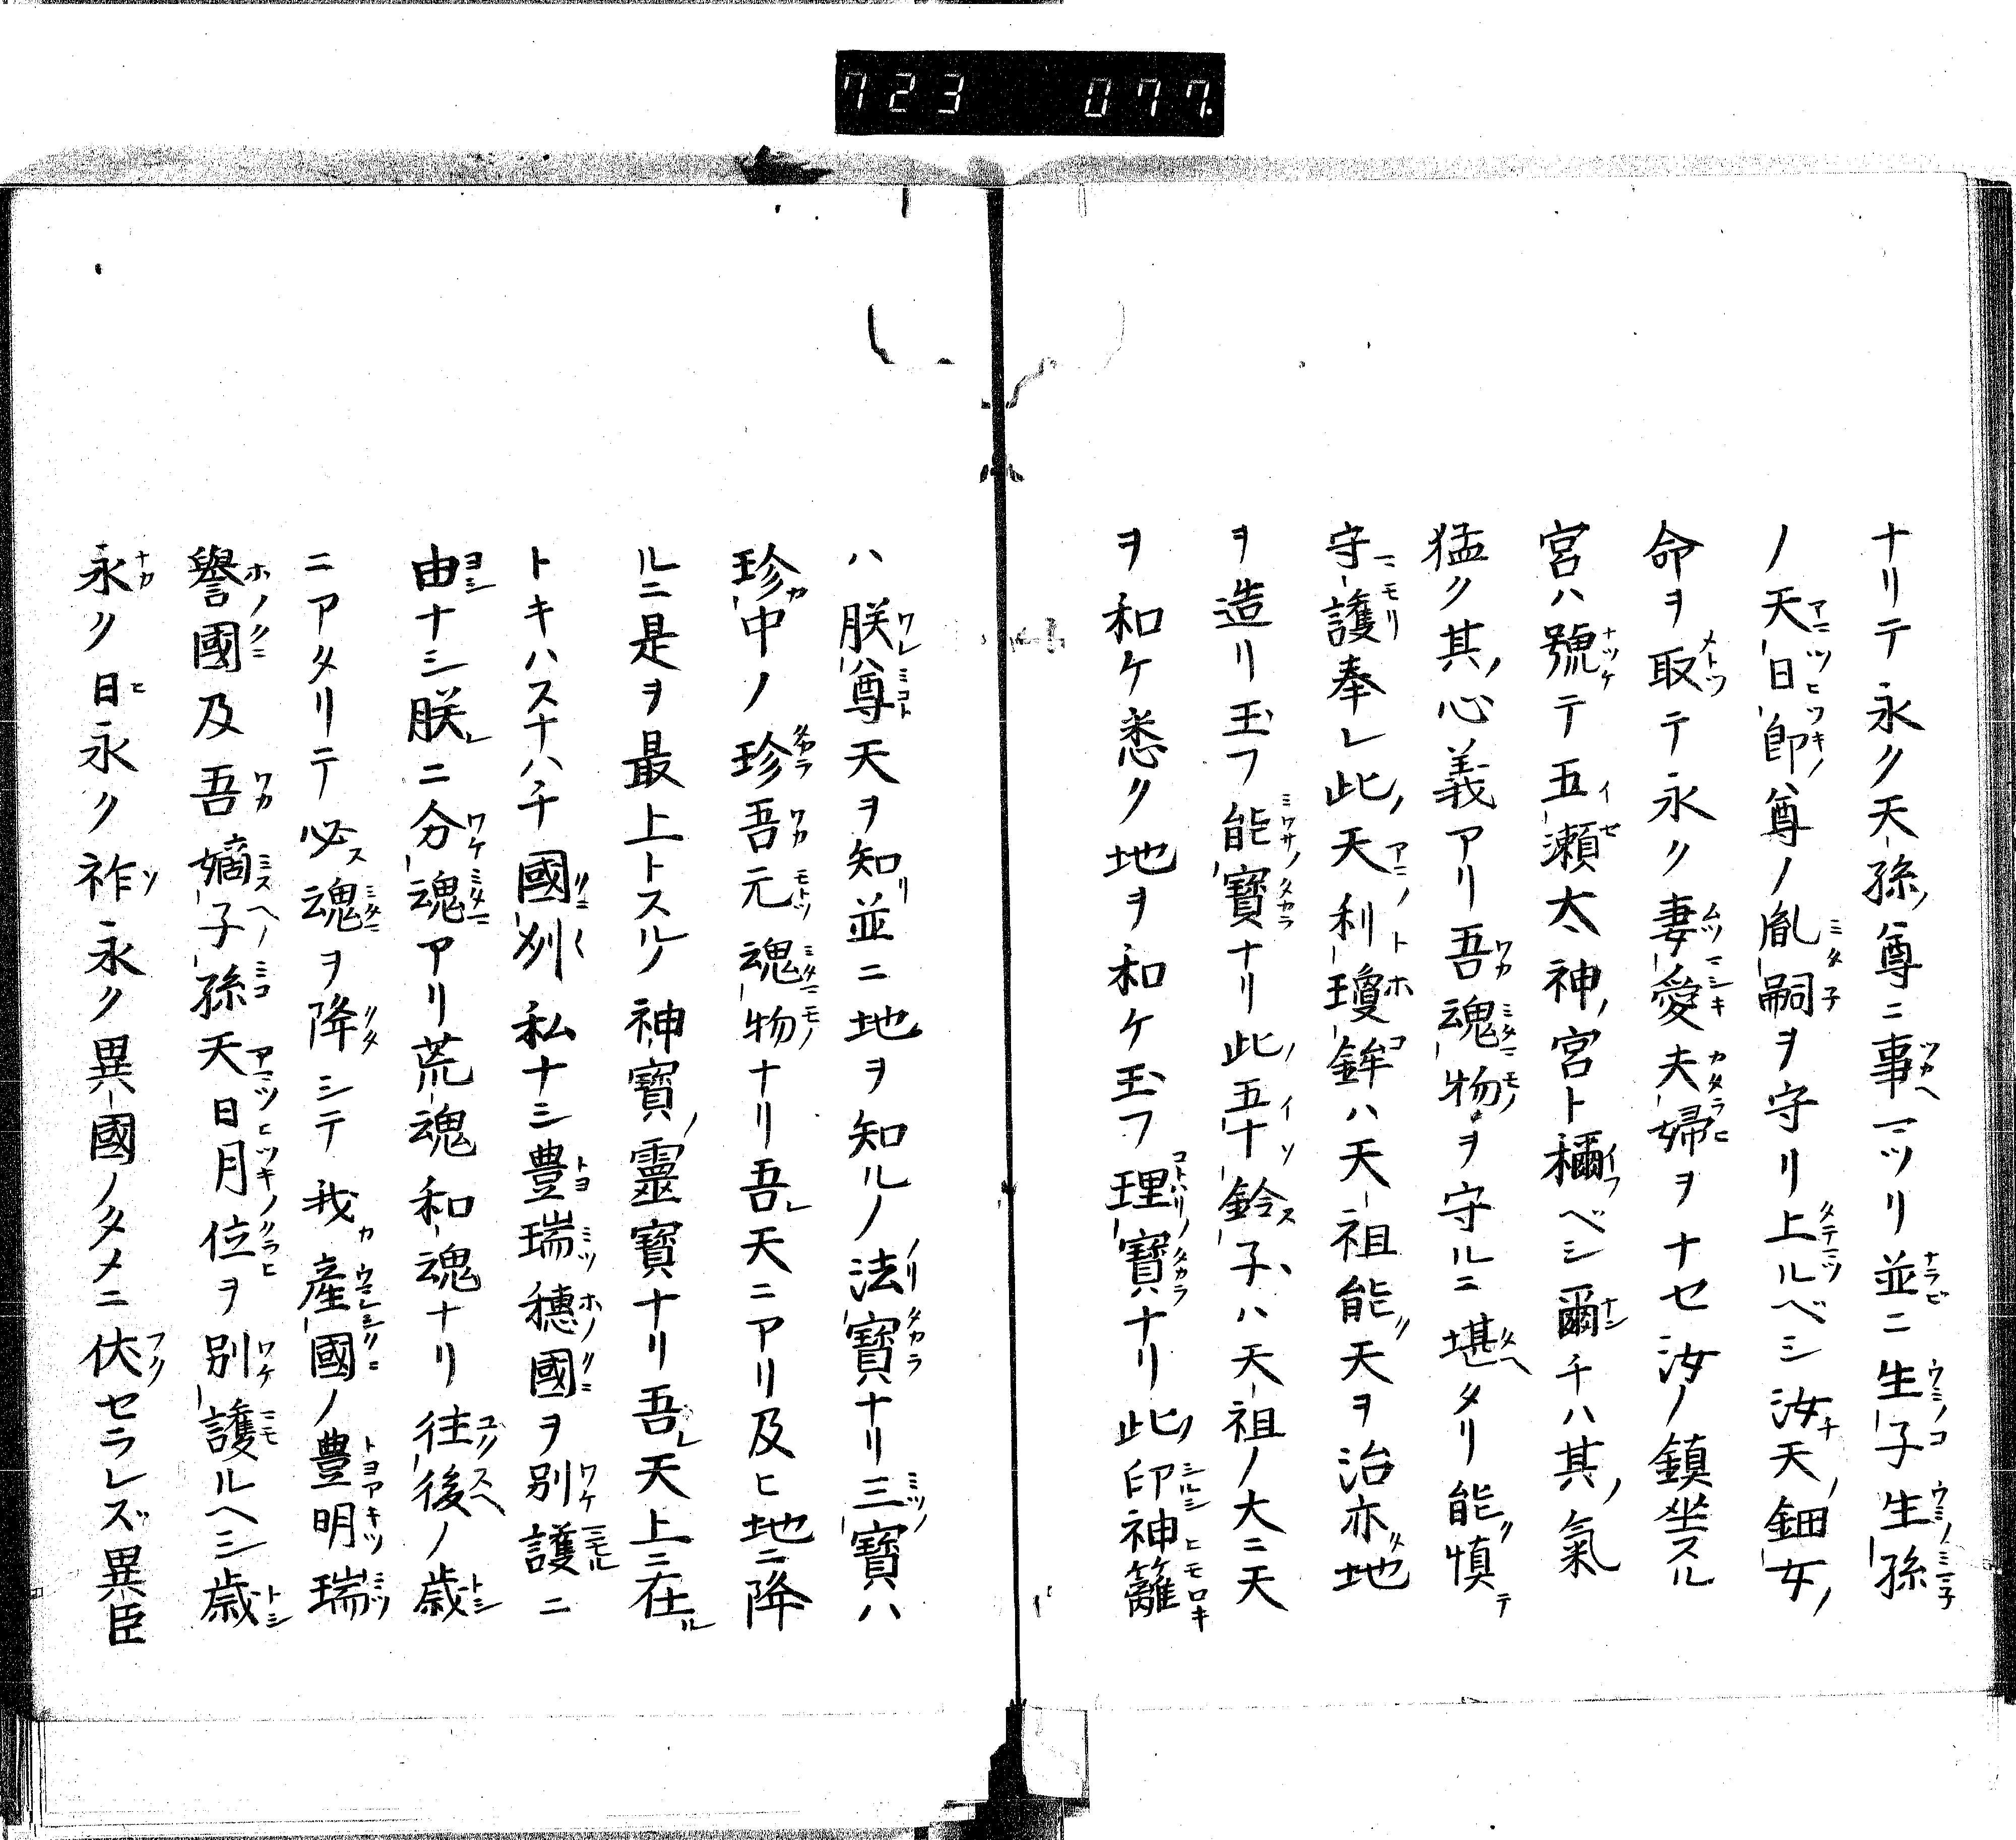 723 077.
ナリテ永ク天孫ノ尊ニ事マツリ並ニ生子生孫
ノ天日郎尊ノ胤嗣ヲ守リ上ルベシ汝天ノ鈿女ノ
命ヲ取テ永ク妻愛夫婦ヲナセ汝ノ鎮坐スル
宮ハ號テ五瀬太神ノ宮ト稱ベシ爾チハ其ノ氣
猛ク其ノ心義アリ吾魂物ヲ守ルニ堪タリ能ク慎テ
守護奉レ此ノ天利瓊鉾ハ天祖能ク天ヲ治亦タ地
ヲ造リ玉フ能寶ナリ此ノ五十鈴子ハ天祖ノ大ニ天
ヲ和ケ悉ク地ヲ和ケ玉フ理寶ナリ此ノ印神籬
ハ朕尊天ヲ知リ並ニ地ヲ知ルノ法寶ナリ三寶ハ
珍カ中ノ珍吾元魂物ナリ吾レ天ニアリ及ヒ地ニ降
ルニ是ヲ最上トスルノ神寶ノ靈寶ナリ吾レ天上ニ在ル
トキハスナハチ國州私ナシ豊瑞穗國ヲ別護ニ
由ナシ朕レニ分魂アリ荒魂和魂ナリ往後ノ歳
ニアタリテ必ス魂ヲ降シテ我カ産國ノ豊明瑞
譽國及吾嫡子孫天日月位ヲ別護ルヘシ歳
永ク日永ク祚永ク異國ノタメニ伏セラレズ異臣